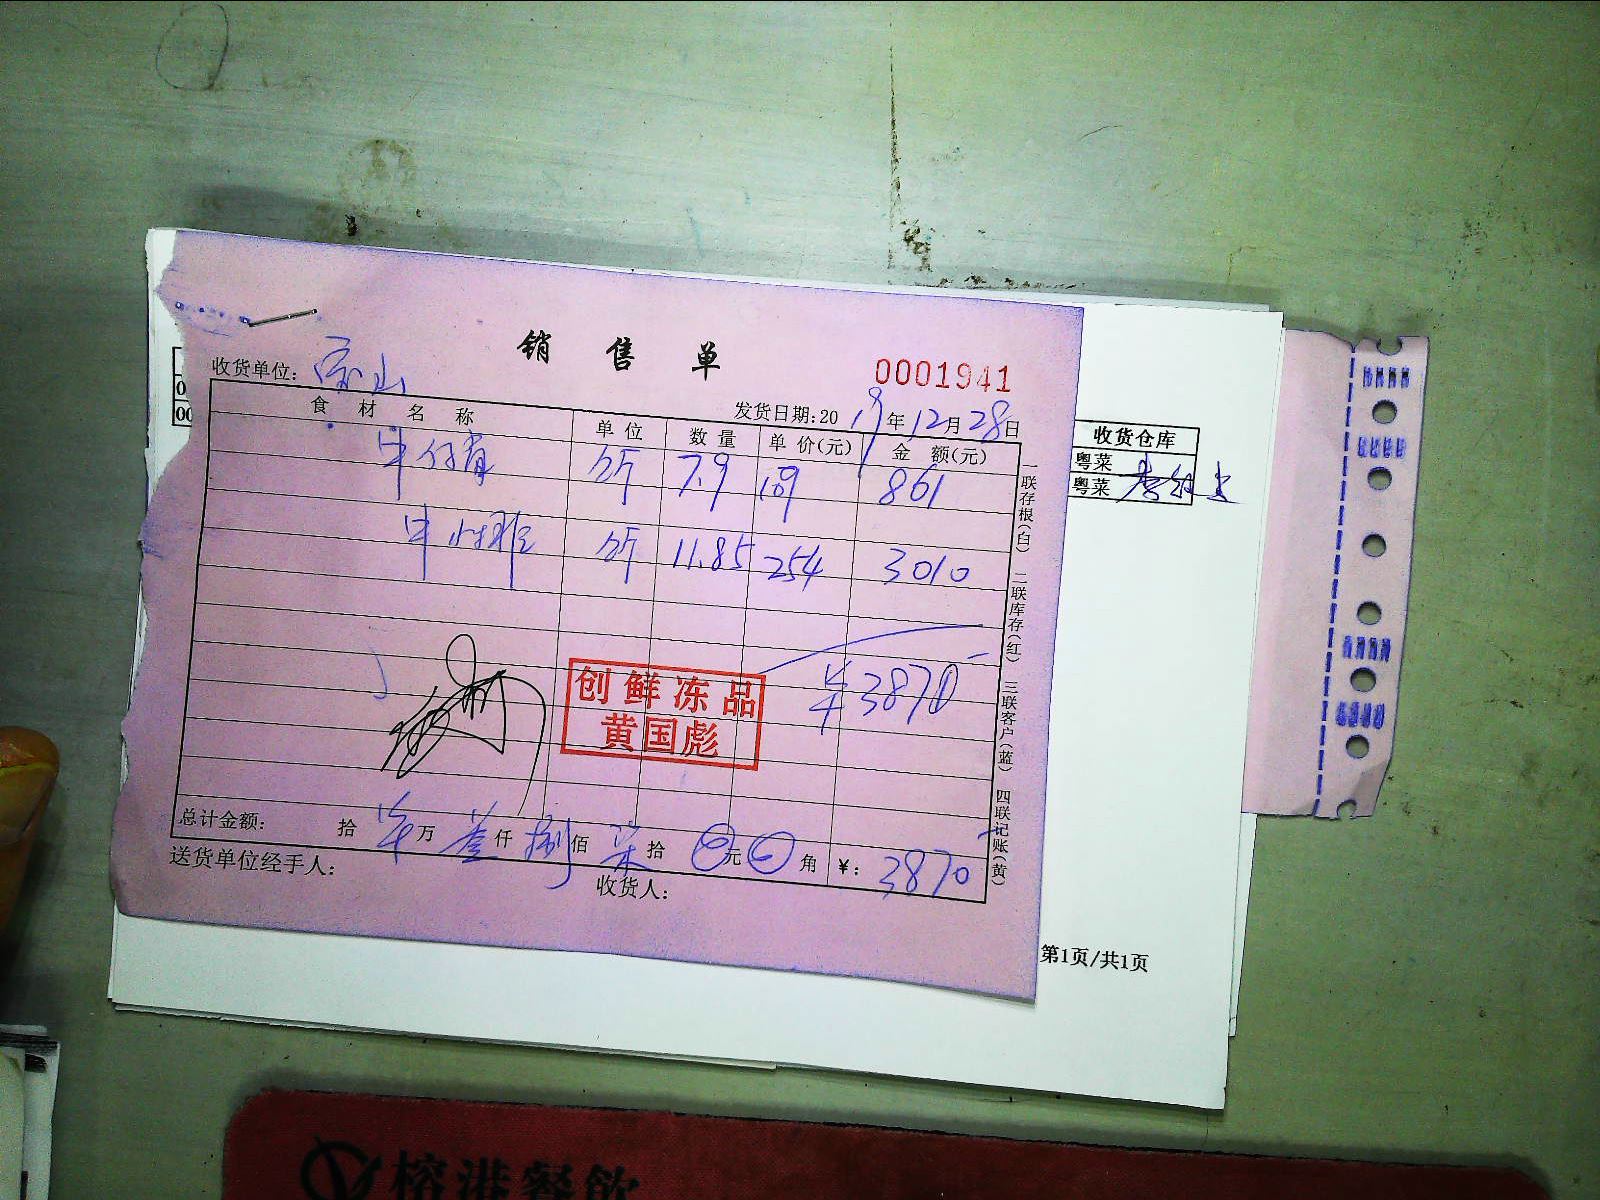 销售单
0001941
收货单位:
发货日期:2019年12月28日
食材名称 单位 数量 单价(元) 金额(元)
牛仔骨 公斤 7.9 109 861
牛 公斤 11.85 254 3010
¥3870
创鲜冻品
黄国彪
总计金额: 拾 万 叁仟 捌佰 柒拾 元 角 ¥: 3870
送货单位经手人: 收货人:
一联存根(白) 二联库存(红) 三联客户(蓝) 四联记账(黄)
收货仓库
粤菜
粤菜
第1页/共1页
榕港餐饮